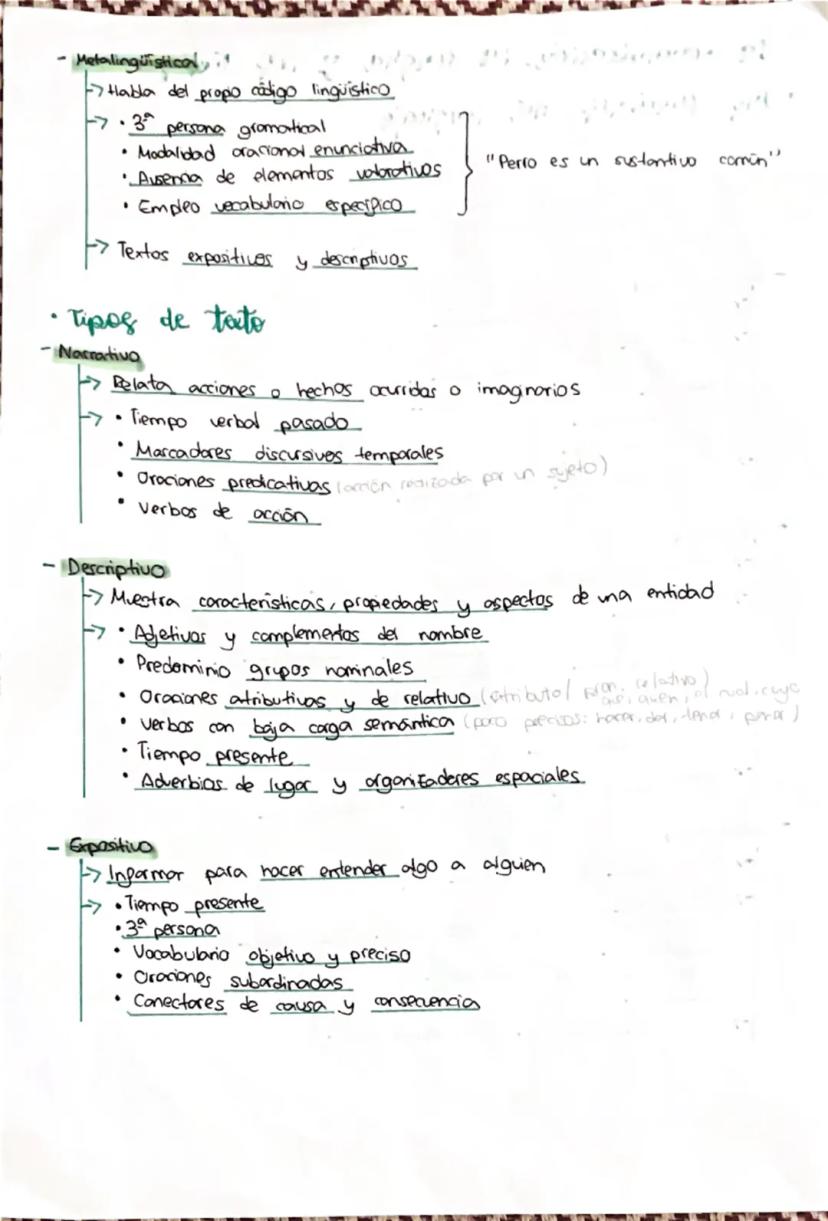 - Metalingüística
→ Habla del propo código lingüístico
→ · 3ª persona gramatical
· Modalidad oracional enunciativa
· Ausencia de elementos valorativos
· Empleo vocabulario específico
"Perro es un sustantivo común"
→ Textos expositivos y descriptivos
· Tipos de texto
- Narrativo
→ Relata acciones o hechos ocurridos o imaginarios
→ · Tiempo verbal pasado
· Marcadores discursivos temporales
· Oraciones predicativas (acción realizada por un sujeto)
· Verbos de acción
- Descriptivo
→ Muestra características, propiedades y aspectos de una entidad
→ · Adjetivos y complementos del nombre
· Predominio grupos nominales
· Oraciones atributivas y de relativo (atributo / pron. relativo)
que, quien, el cual, cuyo
· Verbos con baja carga semántica (poco precisos: hacer, dar, tener, poner)
· Tiempo presente
· Adverbios de lugar y organizadores espaciales
- Expositivo
→ Informar para hacer entender algo a alguien
→ · Tiempo presente
· 3ª persona
· Vocabulario objetivo y preciso
· Oraciones subordinadas
· Conectores de causa y consecuencia